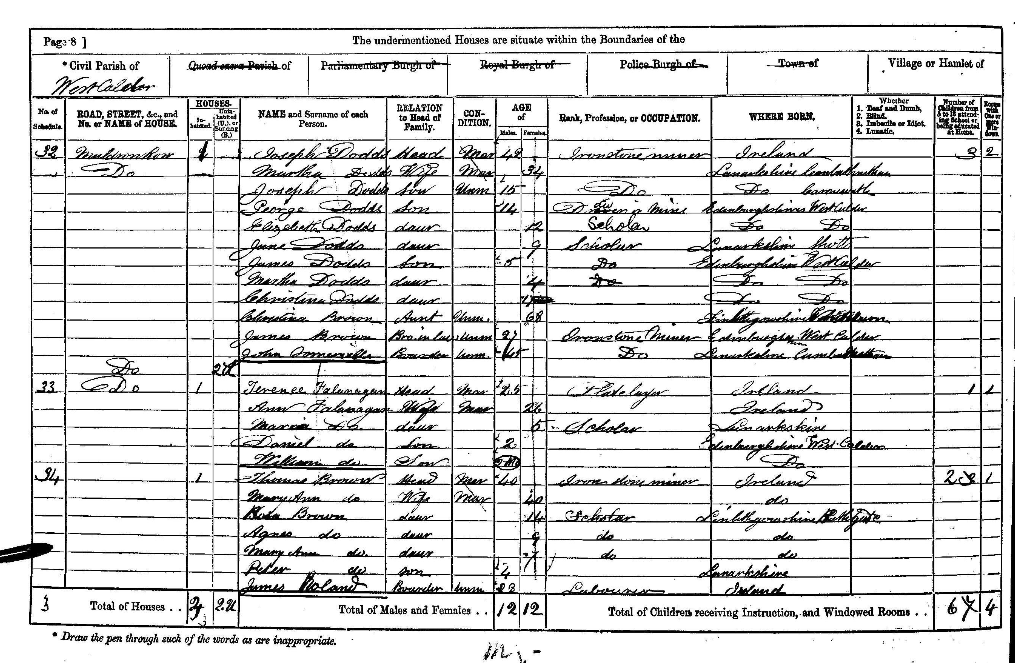 Page 8 ] The undermentioned Houses are situate within the Boundaries of the
* Civil Parish of Quoad sacra Parish of Parliamentary Burgh of Royal Burgh of Police Burgh of Town of Village or Hamlet of
West Calder
No. of Schedule. ROAD, STREET, &c., and No. or NAME of HOUSE. HOUSES. Inhabited. Uninhabited (U.), or Building (B.) NAME and Surname of each Person. RELATION to Head of Family. CONDITION. AGE of Males. Females. Rank, Profession, or OCCUPATION. WHERE BORN. Whether 1. Deaf and Dumb. 2. Blind. 3. Imbecile or Idiot. 4. Lunatic. Number of Children from 5 to 13 attending School or being educated at Home. Rooms with One or more Windows.
32 1 Joseph Dodds Head Mar 48 Ironstone miner Ireland 3 2
Do Martha Dodds Wife Mar 34 Lanarkshire
Joseph Dodds Son Unm 15 Do Do
George Dodds Son 14 Edinburghshire West Calder
Elizabeth Dodds daur 12 Scholar Do Do
Jane Dodds daur 9 Scholar Lanarkshire Shotts
James Dodds Son 5 Do Edinburghshire West Calder
Martha Dodds daur 4 Do Do Do
Christina Dodds daur Do Do
Christina Brown Aunt Unm. 68 Linlithgowshire
James Brown Bro in law Unm 27 Ironstone Miner Edinburgh West Calder
John Somerville Boarder Unm 45 Do Lanarkshire
Do 2U
33 Do 1 Terence Falanagan Head Mar 25 Ireland 1 1
Ann Falanagan Wife Mar 26 Ireland
Do daur 5 Scholar Lanarkshire
Daniel do Son 2 Edinburghshire West Calder
William do Son Do
34 1 Thomas Brown Head Mar 40 Ironstone miner Ireland 2 1
Mary Ann do Wife Mar 40 do
Rosa Brown daur 14 Scholar Linlithgowshire Bathgate
Agnes do daur 9 do do
Mary Ann do. daur 7 do do
Peter do son 4 Lanarkshire
James Boland Boarder Unm 28 Labourer Ireland
3 Total of Houses . . 3 2U Total of Males and Females . . 12 12 Total of Children receiving Instruction, and Windowed Rooms . . 6 4
* Draw the pen through such of the words as are inappropriate.